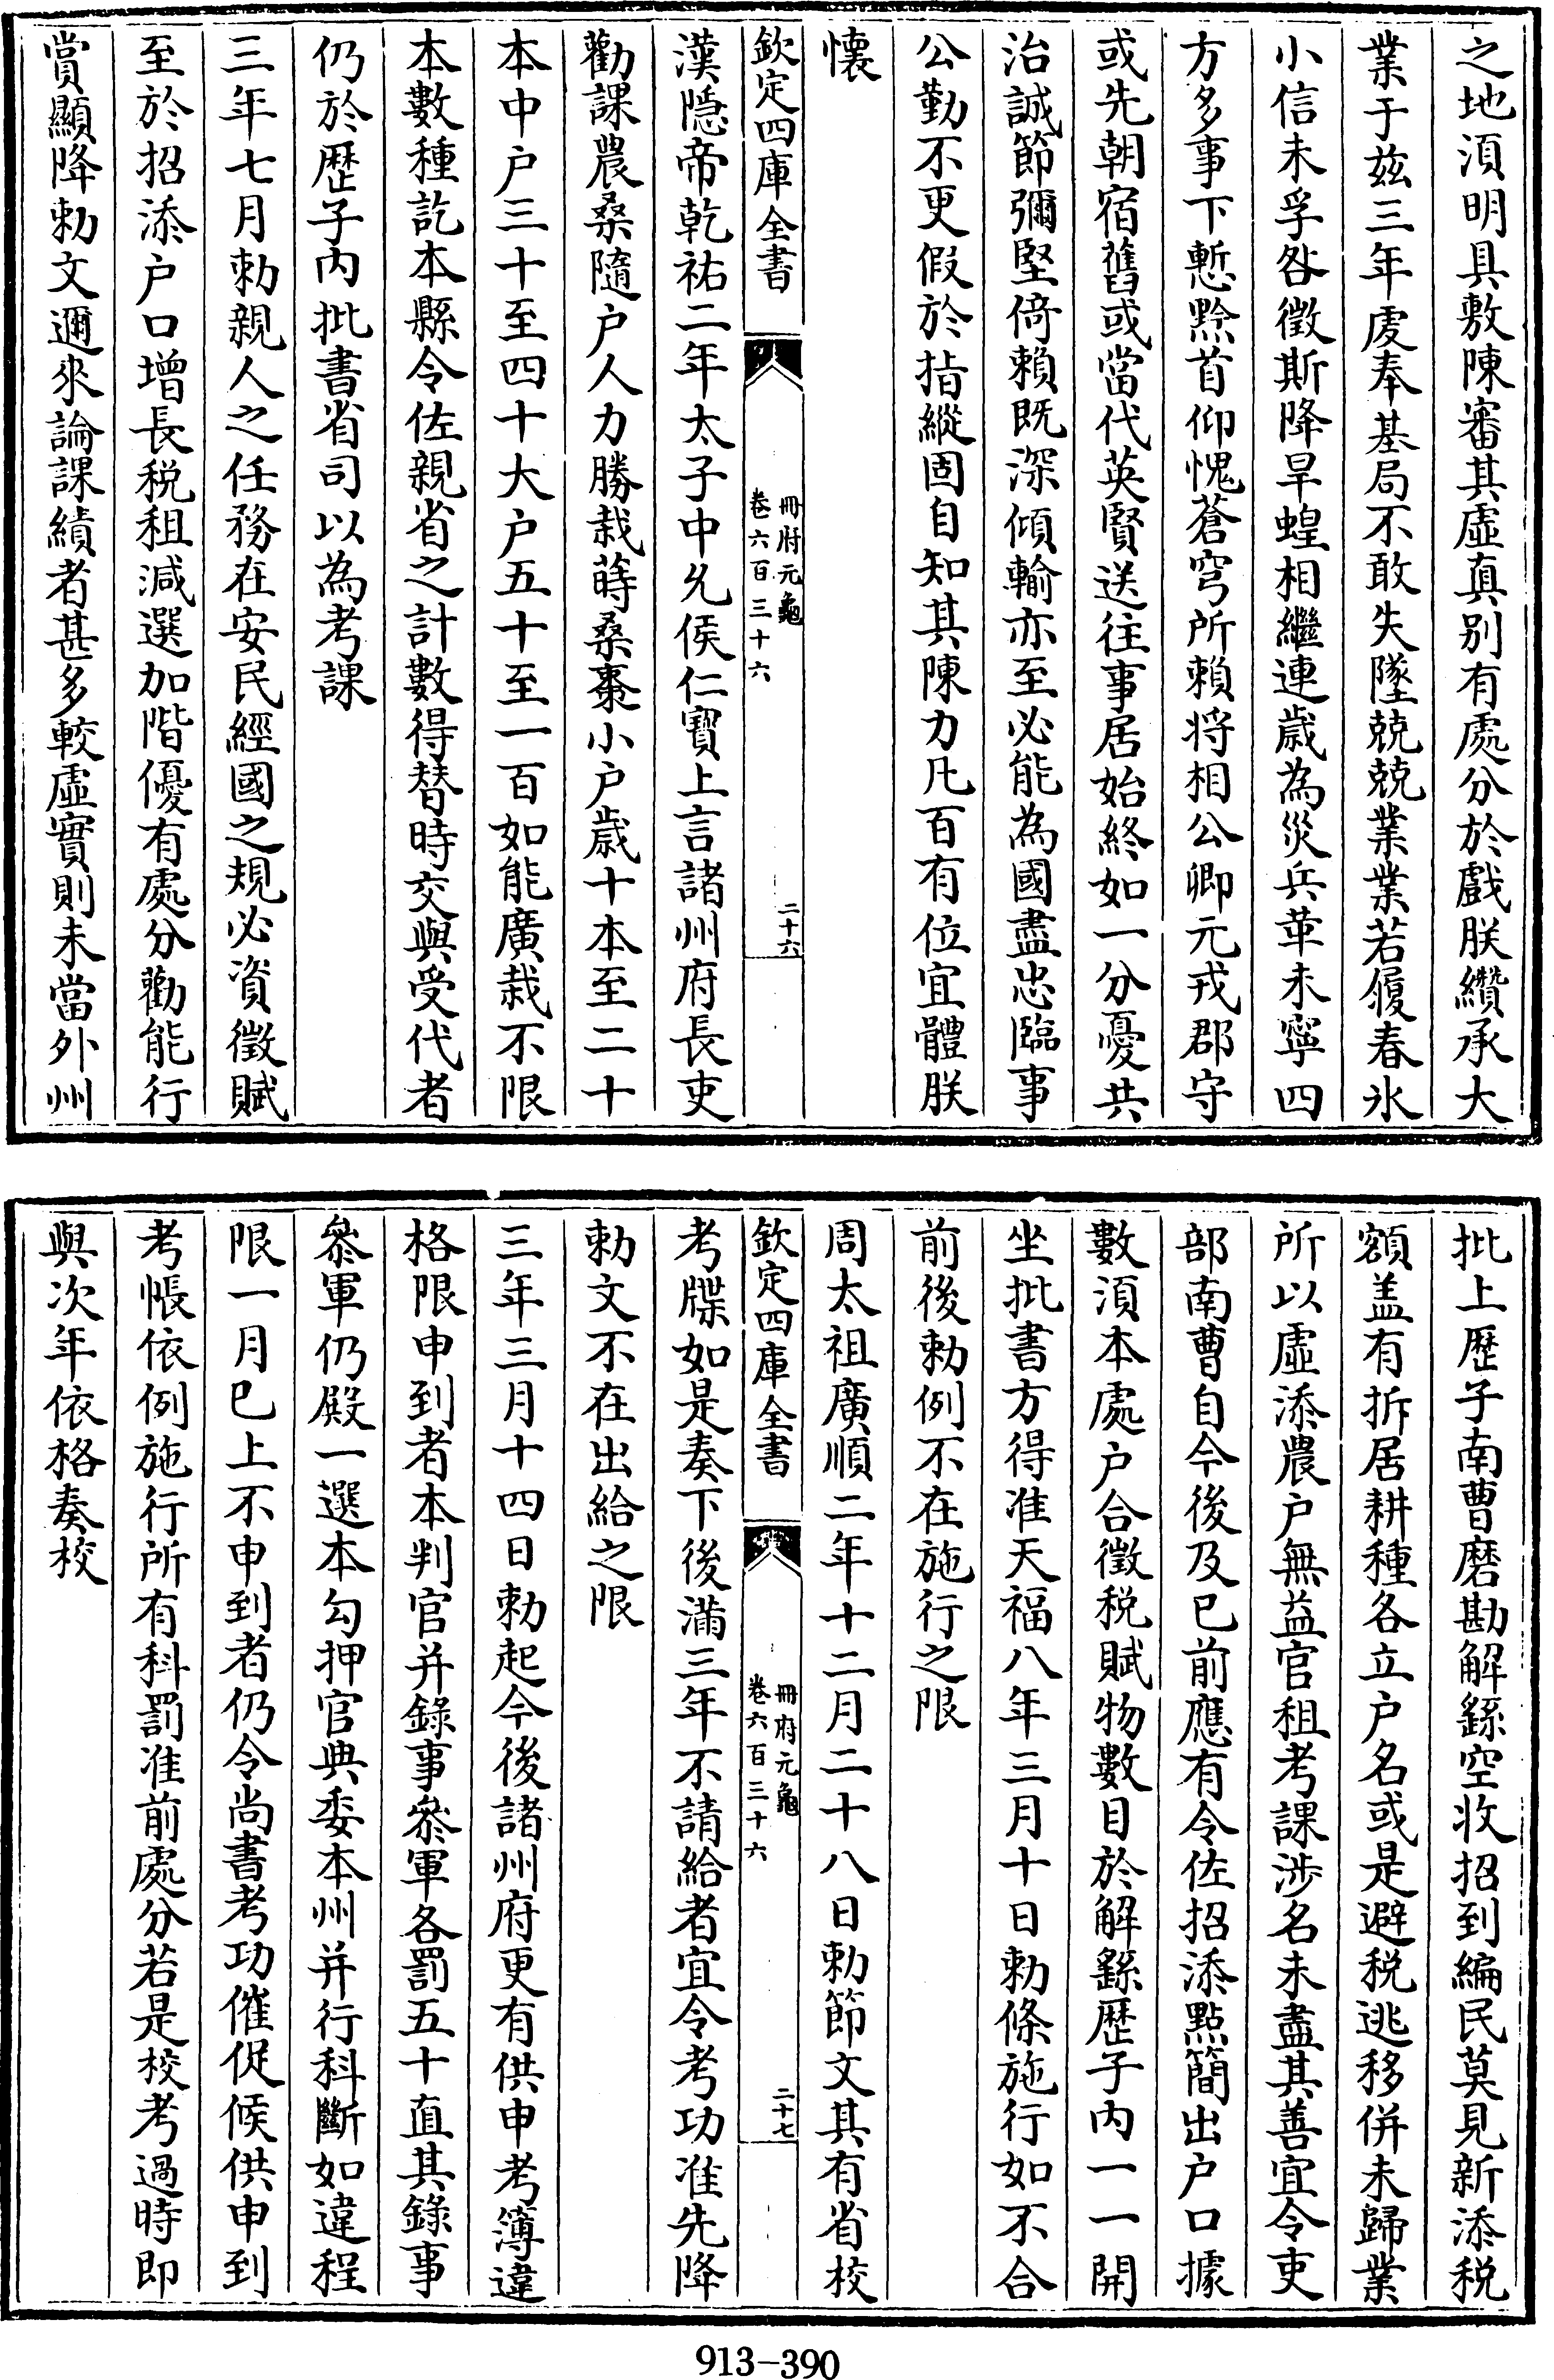 之地湏明具敷陳審其虚真别有處分於戲朕纘承大
業于兹三年䖍奉基局不敢失墜兢兢業業若履春氷
小信未孚咎徵斯降旱蝗相繼連歲為災兵革未寧四
方多事下慙黔首仰愧蒼穹所賴将相公卿元戎郡守
或先朝宿舊或當代英賢送往事居始終如一分憂共
治誠節彌堅倚賴既深傾輸亦至必能為國盡忠臨事
公勤不更假於指縱固自知其陳力凡百有位宜體朕
懐
欽定四庫全書
冊府元龜
卷六百三十六
二十六
漢隱帝乾祐二年太子中允侯仁寳上言諸州府長吏
勸課農桑隨户人力勝栽蒔桑棗小户歲十本至二十
本中户三十至四十大户五十至一百如能廣栽不限
本數種訖本縣令佐親省之計數得替時交與受代者
仍於歴子内批書省司以為考課
三年七月勅親人之任務在安民經國之規必資徵賦
至於招添户口增長税租減選加階優有處分勸能行
賞顯降勅文邇來論課績者甚多較虚實則未當外州
批上歴子南曹磨勘解繇空收招到編民莫見新添税
額盖有拆居耕種各立户名或是避税逃移併未歸業
所以虚添農户無益官租考課涉名未盡其善宜令吏
部南曹自今後及已前應有令佐招添點簡出户口據
數湏本處户合徵税賦物數目於解繇歴子内一一開
坐批書方得准天福八年三月十日勅條施行如不合
前後勅例不在施行之限
周太祖廣順二年十二月二十八日勅節文其有省校
欽定四庫全書
冊府元龜
卷六百三十六
二十七
考牒如是奏下後滿三年不請給者宜令考功准先降
勅文不在出給之限
三年三月十四日勅起今後諸州府更有供申考簿違
格限申到者本判官并錄事叅軍各罰五十直其錄事
叅軍仍殿一選本勾押官典委本州并行科斷如違程
限一月已上不申到者仍令尚書考功催促候供申到
考帳依例施行所有科罰准前處分若是校考過時即
與次年依格奏校
913-390